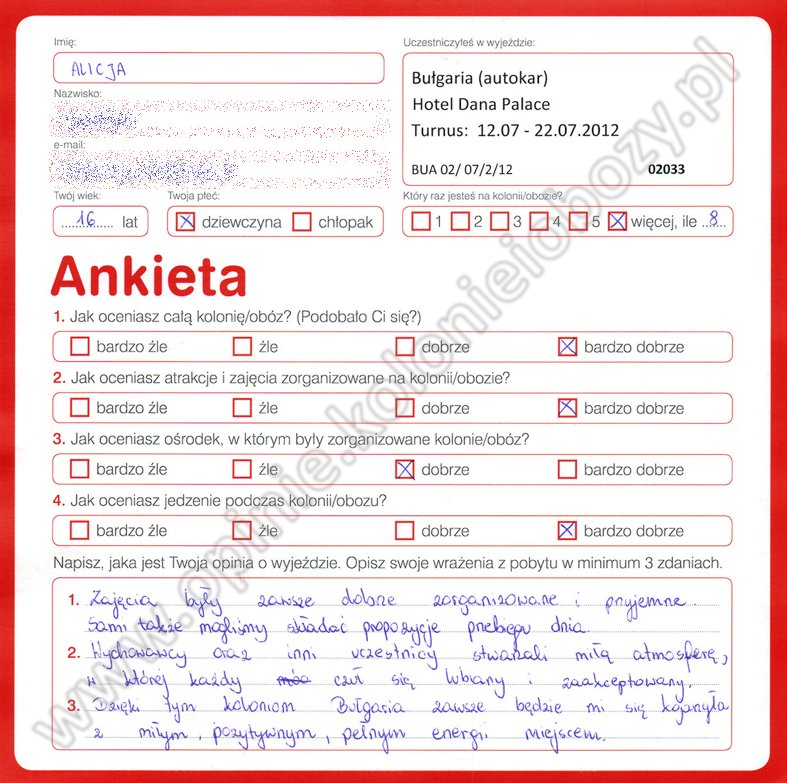 Imię:
ALICJA
Uczestniczyłeś w wyjeździe:
Bułgaria (autokar)
Hotel Dana Palace
Turnus: 12.07 - 22.07.2012
BUA 02/ 07/2/12 02033
Nazwisko:
e-mail:
Twój wiek:
16 lat
Twoja płeć:
dziewczyna chłopak
Który raz jesteś na kolonii/obozie?
1 2 3 4 5 więcej, ile 8
Ankieta
1. Jak oceniasz całą kolonię/obóz? (Podobało Ci się?)
bardzo źle źle dobrze bardzo dobrze
2. Jak oceniasz atrakcje i zajęcia zorganizowane na kolonii/obozie?
bardzo źle źle dobrze bardzo dobrze
3. Jak oceniasz ośrodek, w którym były zorganizowane kolonie/obóz?
bardzo źle źle dobrze bardzo dobrze
4. Jak oceniasz jedzenie podczas kolonii/obozu?
bardzo źle źle dobrze bardzo dobrze
Napisz, jaka jest Twoja opinia o wyjeździe. Opisz swoje wrażenia z pobytu w minimum 3 zdaniach.
1. Zajęcia były zawsze dobrze zorganizowane i przyjemne.
Sami także mogliśmy składać propozycje przebiegu dnia.
2. Wychowawcy oraz inni uczestnicy stwarzali miłą atmosferę,
w której każdy czuł się lubiany i zaakceptowany.
3. Dzięki tym koloniom Bułgaria zawsze będzie mi się kojarzyła
z miłym, pozytywnym, pełnym energii miejscem.
www.opinie.kolonieiobozy.pl